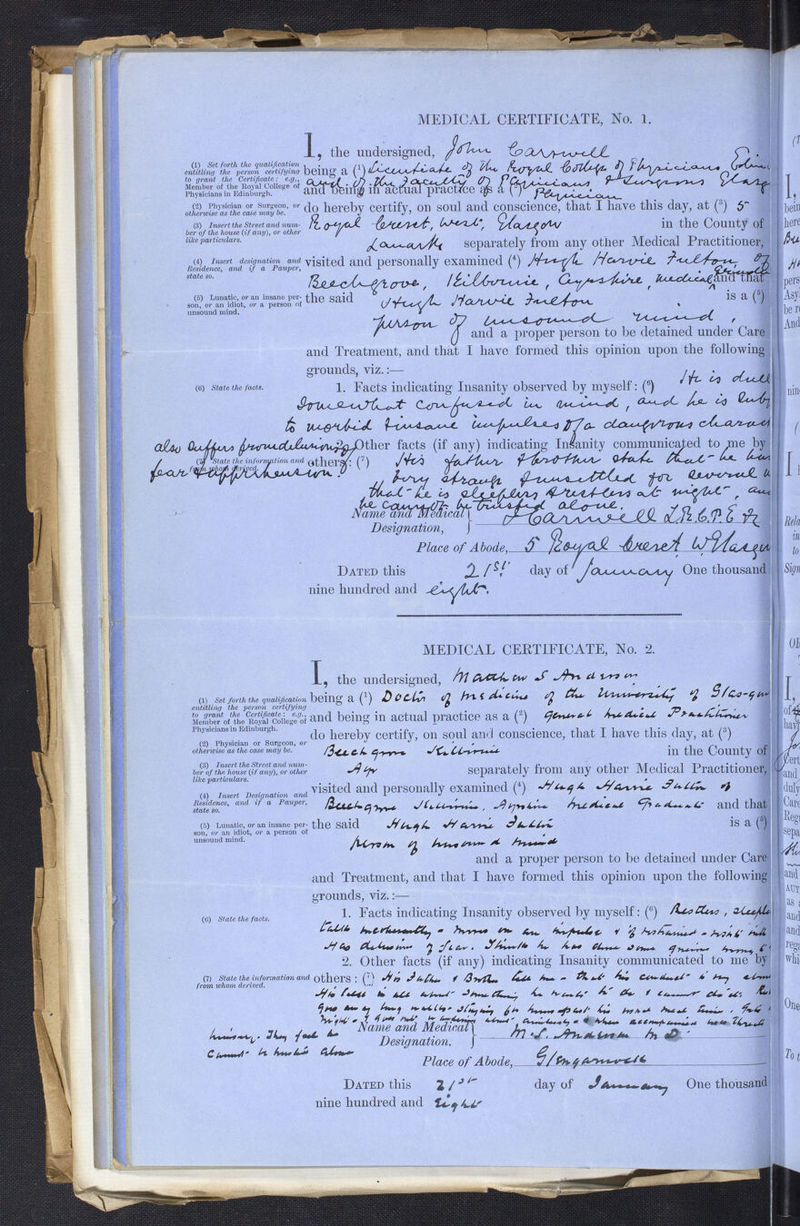 MEDICAL CERTIFICATE, No. 1.
I, the undersigned, John Carswell
(1) Set forth the qualification entitling the person certifying to grant the Certificate: e.g., Member of the Royal College of Physicians in Edinburgh.
being a (1) Licentiate of the Royal College of Physicians Edin.
and of the Faculty of Physicians & Surgeons Glasg
and being in actual practice as a (2) Physician
(2) Physician or Surgeon, or otherwise as the case may be.
do hereby certify, on soul and conscience, that I have this day, at (3) 5
(3) Insert the Street and number of the house (if any), or other like particulars.
Royal Crescent, West, Glasgow in the County of
Lanark separately from any other Medical Practitioner,
(4) Insert designation and Residence, and if a Pauper, state so.
visited and personally examined (4) Hugh Harvie Fulton, of
Beechgrove, Kilbirnie, Ayrshire, medical and that
(5) Lunatic, or an insane person, or an idiot, or a person of unsound mind.
the said Hugh Harvie Fulton is a (5)
person of unsound mind,
and a proper person to be detained under Care
and Treatment, and that I have formed this opinion upon the following
grounds, viz.:—
(6) State the facts.
1. Facts indicating Insanity observed by myself: (6) He is dull
somewhat confused in mind, and he is subj
to morbid & insane impulses of a dangerous charac
also suffers from delusions of Other facts (if any) indicating Insanity communicated to me by
fear & apprehension.
(7) State the information and from whom derived.
others: (7) His father & brother state that he has
been strange & unsettled for several w
that he is sleepless & restless at night, and
he cannot be trusted alone.
Name and Medical Designation, J Carswell L.R.C.P.E &
Place of Abode, 5 Royal Crescent W Glasgow
DATED this 21st day of January One thousand
nine hundred and eight.
MEDICAL CERTIFICATE, No. 2.
I, the undersigned, Matthew S Anderson
(1) Set forth the qualification entitling the person certifying to grant the Certificate: e.g., Member of the Royal College of Physicians in Edinburgh.
being a (1) Doctor of medicine of the University of Glasgow
and being in actual practice as a (2) General Medical Practitioner
(2) Physician or Surgeon, or otherwise as the case may be.
do hereby certify, on soul and conscience, that I have this day, at (3)
Beechgrove Kilbirnie in the County of
(3) Insert the Street and number of the house (if any), or other like particulars.
Ayr separately from any other Medical Practitioner,
(4) Insert Designation and Residence, and if a Pauper, state so.
visited and personally examined (4) Hugh Harvie Fulton of
Beechgrove Kilbirnie, Ayrshire Medical Graduate and that
(5) Lunatic, or an insane person, or an idiot, or a person of unsound mind.
the said Hugh Harvie Fulton is a (5)
Person of unsound mind
and a proper person to be detained under Care
and Treatment, and that I have formed this opinion upon the following
grounds, viz.:—
(6) State the facts.
1. Facts indicating Insanity observed by myself: (6) Restless, sleepless
talks incoherently - moves on an impulse & if restrained - might
Has delusions of fear. Thinks he has done some wrong
2. Other facts (if any) indicating Insanity communicated to me by
(7) State the information and from whom derived.
others: (7) His Father & Brother tell me - that his conduct is very
His talk is all about something he wants to do & cannot do it.
Goes away long walks - staying for hours past his usual meal time.
when accompanied
They feel he
cannot be trusted alone
Name and Medical Designation. M. S. Anderson M D
Place of Abode, Glengarnock
DATED this 21st day of January One thousand
nine hundred and eight